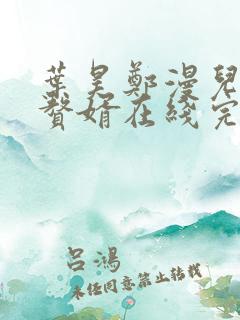 葉昊鄭漫兒
贅婿在綫完
呂鴻
未经同意禁止转载